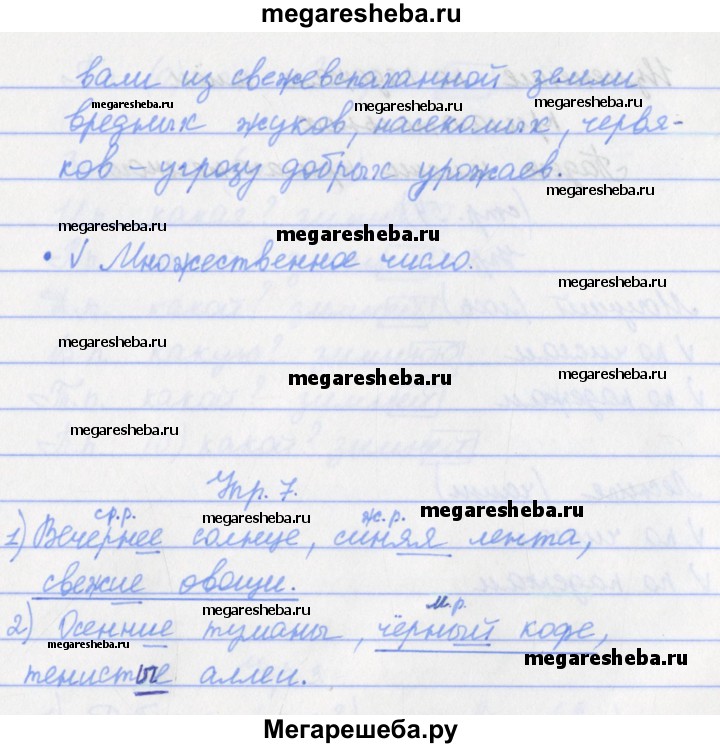 megaresheba.ru
вали из свежевспаханной земли
megaresheba.ru megaresheba.ru megaresheba.ru
вредных жуков, насекомых, червя-
ков – угрозу добрых урожаев.
megaresheba.ru
megaresheba.ru megaresheba.ru
• √ Множественное число.
megaresheba.ru
megaresheba.ru
megaresheba.ru megaresheba.ru
megaresheba.ru
Упр. 7.
ср.р. megaresheba.ru ж.р. megaresheba.ru
1) Вечернее солнце, синяя лента,
свежие овощи.
megaresheba.ru м.р.
2) Осенние туманы, чёрный кофе,
megaresheba.ru megaresheba.ru
тенистые аллеи.
Мегарешеба.ру